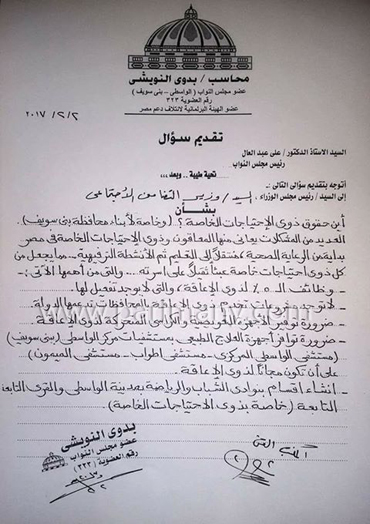 محاسب / بدوى النويشى
عضو مجلس النواب (الواسطى – بنى سويف)
رقم العضوية ٣٢٣
عضو الهيئة البرلمانية لائتلاف دعم مصر
٢٠١٧/٢/٢
تقديم سؤال
السيد الاستاذ الدكتور / على عبد العال
رئيس مجلس النواب
تحية طيبة .. وبعد ،،،
أتوجه بتقديم سؤالى التالى :
إلى السيد / رئيس مجلس الوزراء ، السيد / وزير التضامن الاجتماعى
بشأن
أين حقوق ذوى الإحتياجات الخاصة ؟ (وخاصة لأبناء محافظة بنى سويف).
العديد من المشكلات يعانى منها المعاقون وذوى الإحتياجات الخاصة فى مصر
بداية من الرعاية الصحية ، منتقلاً إلى التعليم ثم الأنشطة الترفيهية .. مما يجعل من
كل ذوى احتياجات خاصة عبئاً ثقيلاً على أسرته ... والتى من أهمها الآتى :-
- وظائف الـ ٥٪ لذوى الإعاقة ، والتى لا يوجد تفعيل لها.
- لا توجد مشروعات تخدم ذوى الإعاقة بالمحافظات تدعمها الدولة.
- ضرورة توفير الأجهزة التعويضية والكراسى المتحركة لذوى الإعاقة
- ضرورة توافر أجهزة العلاج الطبيعى بمستشفيات مركز الواسطى (بنى سويف)
(مستشفى الواسطى المركزى – مستشفى اطواب – مستشفى الميمون)
على أن تكون مجاناً لذوى الإعاقة.
- إنشاء أقسام بنوادى الشباب والرياضة بمدينة الواسطى والقرى التابعة
التابعة (خاصة بذوى الاحتياجات الخاصة)
www.parlmany.com
بدوى النويشى
عضو مجلس النواب
رقم العضوية (٣٢٣)